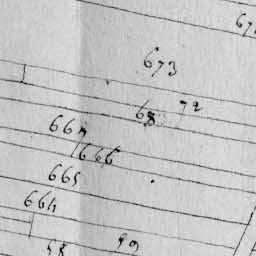 673
72
68
667
666
665
664
58
59